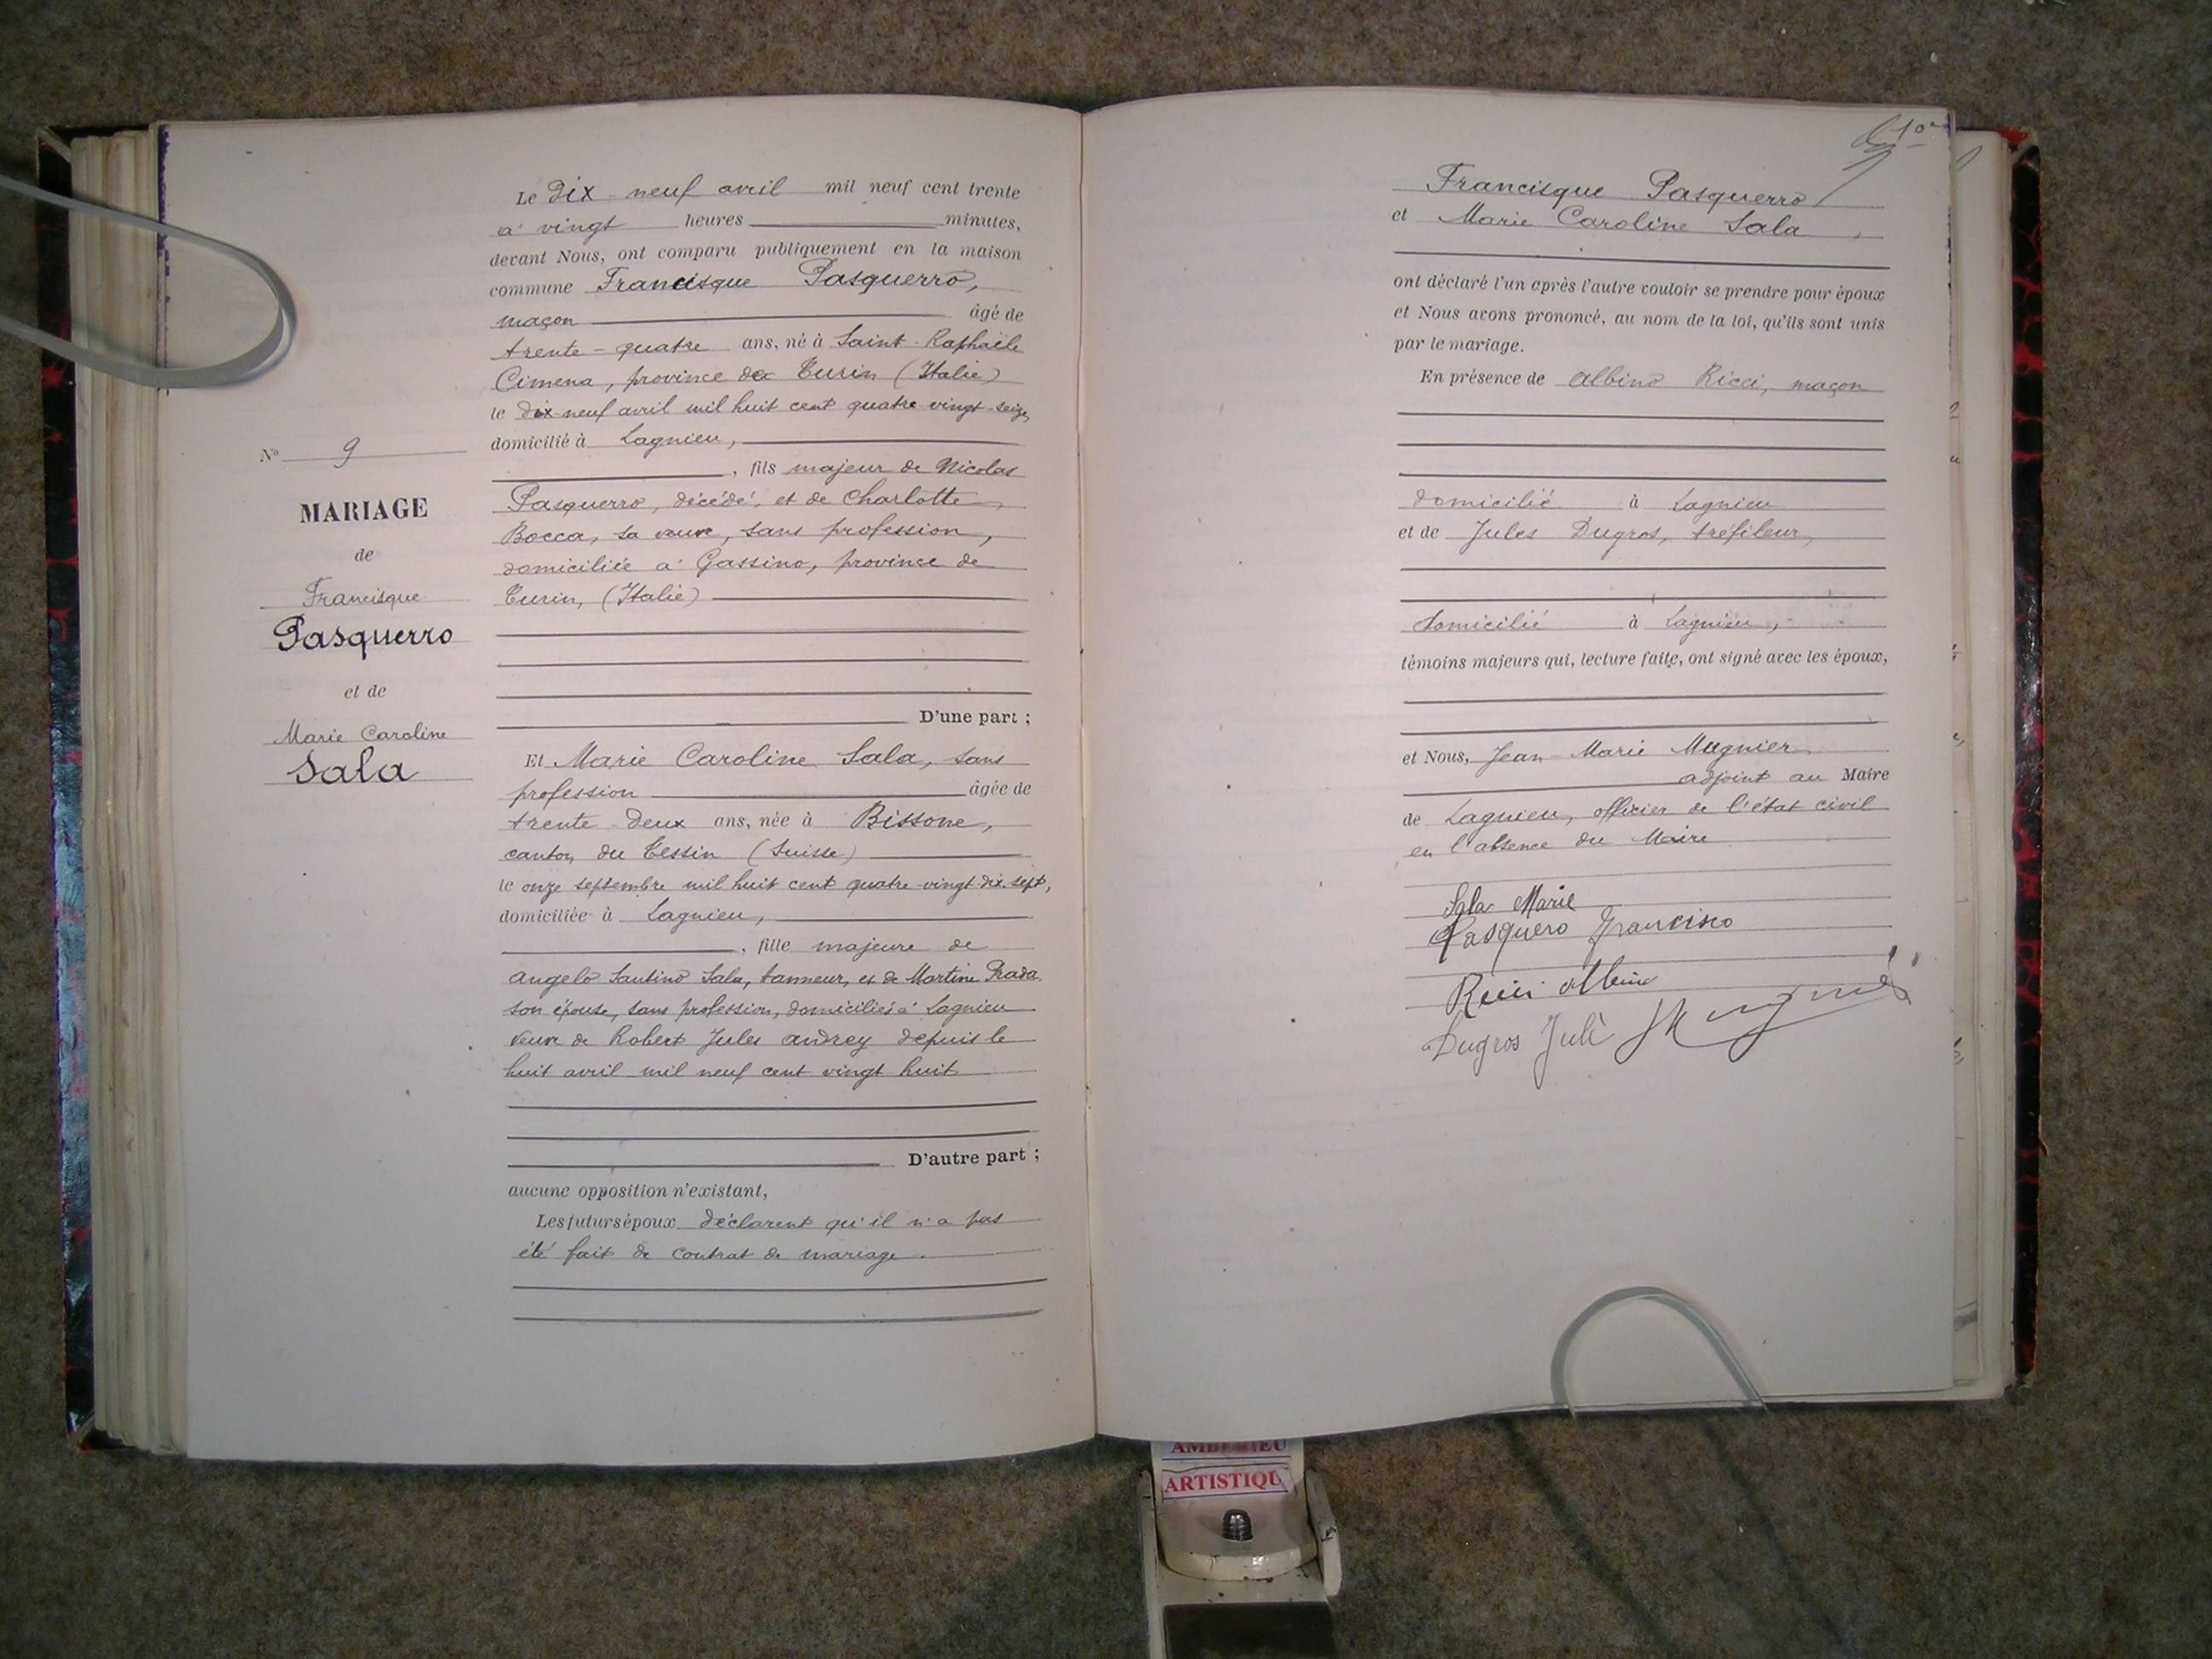 N° 9
MARIAGE
de
Francisque
Pasquerro
et de
Marie Caroline
Sala
Le dix-neuf avril mil neuf cent trente
à vingt heures minutes,
devant Nous, ont comparu publiquement en la maison
commune Francisque Pasquerro,
maçon âgé de
trente-quatre ans, né à Saint-Raphaële
Cimena, province de Turin (Italie)
le dix-neuf avril mil huit cent quatre-vingt-seize,
domicilié à Lagnieu,
, fils majeur de Nicolas
Pasquerro, décédé, et de Charlotte
Bocca, sa veuve, sans profession,
domiciliée à Gassino, province de
Turin, (Italie)
D'une part ;
Et Marie Caroline Sala, sans
profession âgée de
trente-deux ans, née à Bissone,
canton du Tessin (Suisse)
le onze septembre mil huit cent quatre-vingt-dix-sept,
domiciliée à Lagnieu,
, fille majeure de
Angelo Santino Sala, tanneur, et de Martine Prada
son épouse, sans profession, domiciliés à Lagnieu
veuve de Robert Jules Andrey depuis le
huit avril mil neuf cent vingt huit
D'autre part ;
aucune opposition n'existant,
Les futurs époux déclarent qu'il n'a pas
été fait de contrat de mariage.
Francisque Pasquerro
et Marie Caroline Sala,
ont déclaré l'un après l'autre vouloir se prendre pour époux
et Nous avons prononcé, au nom de la loi, qu'ils sont unis
par le mariage.
En présence de Albino Ricci, maçon
domicilié à Lagnieu
et de Jules Dugros, tréfileur,
domicilié à Lagnieu,
témoins majeurs qui, lecture faite, ont signé avec les époux,
et Nous, Jean-Marie Mugnier
adjoint au Maire
de Lagnieu, officier de l'état civil
en l'absence du Maire
Sala Marie
Pasquero Francisco
Ricci Albino
Dugros Jule
AMBERIEU
ARTISTIQU